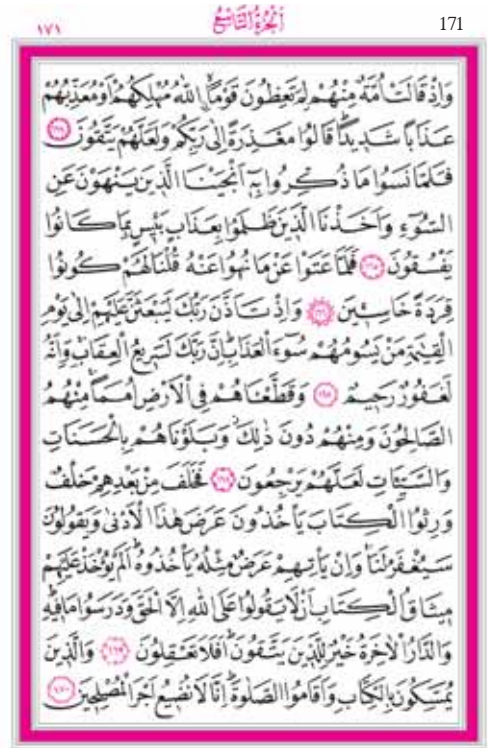 ١٧١ اَلْجُزْءُ التَّاسِعُ 171
وَاِذْ قَالَتْ اُمَّةٌ مِنْهُمْ لِمَ تَعِظُونَ قَوْمًاۙ اللّٰهُ مُهْلِكُهُمْ اَوْ مُعَذِّبُهُمْ
عَذَابًا شَد۪يدًاۜ قَالُوا مَعْذِرَةً اِلٰى رَبِّكُمْ وَلَعَلَّهُمْ يَتَّقُونَ ﴿١٦٤﴾
فَلَمَّا نَسُوا مَا ذُكِّرُوا بِه۪ٓ اَنْجَيْنَا الَّذ۪ينَ يَنْهَوْنَ عَنِ
السُّٓوءِ وَاَخَذْنَا الَّذ۪ينَ ظَلَمُوا بِعَذَابٍ بَـ۪ٔيسٍ بِمَا كَانُوا
يَفْسُقُونَ ﴿١٦٥﴾ فَلَمَّا عَتَوْا عَنْ مَا نُهُوا عَنْهُ قُلْنَا لَهُمْ كُونُوا
قِرَدَةً خَاسِـ۪ٔينَ ﴿١٦٦﴾ وَاِذْ تَاَذَّنَ رَبُّكَ لَيَبْعَثَنَّ عَلَيْهِمْ اِلٰى يَوْمِ
الْقِيٰمَةِ مَنْ يَسُومُهُمْ سُٓوءَ الْعَذَابِۜ اِنَّ رَبَّكَ لَسَر۪يعُ الْعِقَابِۚ وَاِنَّهُ
لَغَفُورٌ رَح۪يمٌ ﴿١٦٧﴾ وَقَطَّعْنَاهُمْ فِي الْاَرْضِ اُمَمًاۚ مِنْهُمُ
الصَّالِحُونَ وَمِنْهُمْ دُونَ ذٰلِكَۘ وَبَلَوْنَاهُمْ بِالْحَسَنَاتِ
وَالسَّيِّـَٔاتِ لَعَلَّهُمْ يَرْجِعُونَ ﴿١٦٨﴾ فَخَلَفَ مِنْ بَعْدِهِمْ خَلْفٌ
وَرِثُوا الْكِتَابَ يَأْخُذُونَ عَرَضَ هٰذَا الْاَدْنٰى وَيَقُولُونَ
سَيُغْفَرُ لَنَاۚ وَاِنْ يَأْتِهِمْ عَرَضٌ مِثْلُهُ يَأْخُذُوهُۜ اَلَمْ يُؤْخَذْ عَلَيْهِمْ
م۪يثَاقُ الْكِتَابِ اَنْ لَا يَقُولُوا عَلَى اللّٰهِ اِلَّا الْحَقَّ وَدَرَسُوا مَا ف۪يهِۜ
وَالدَّارُ الْاٰخِرَةُ خَيْرٌ لِلَّذ۪ينَ يَتَّقُونَۜ اَفَلَا تَعْقِلُونَ ﴿١٦٩﴾ وَالَّذ۪ينَ
يُمَسِّكُونَ بِالْكِتَابِ وَاَقَامُوا الصَّلٰوةَۜ اِنَّا لَا نُض۪يعُ اَجْرَ الْمُصْلِح۪ينَ ﴿١٧٠﴾